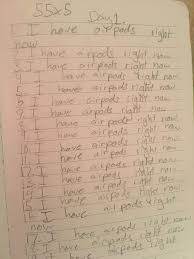 55x5
Day 1.
1. I have airpods right
now
2. I have airpods right now
3. I have airpods right now
4. I have airpods right now
5. I have airpods right now
6. I have airpods right now
7. I have airpods right now
8. I have airpods right now
9. I have airpods right now
10. I have airpods right now
11. I have airpods right now
12. I have airpods right now
13. I have airpods right now
14. I have airpods right now
15. I have airpods right now
16. I have airpods right
now
17. I have airpods right now
18. I have airpods right now
I have airpods right